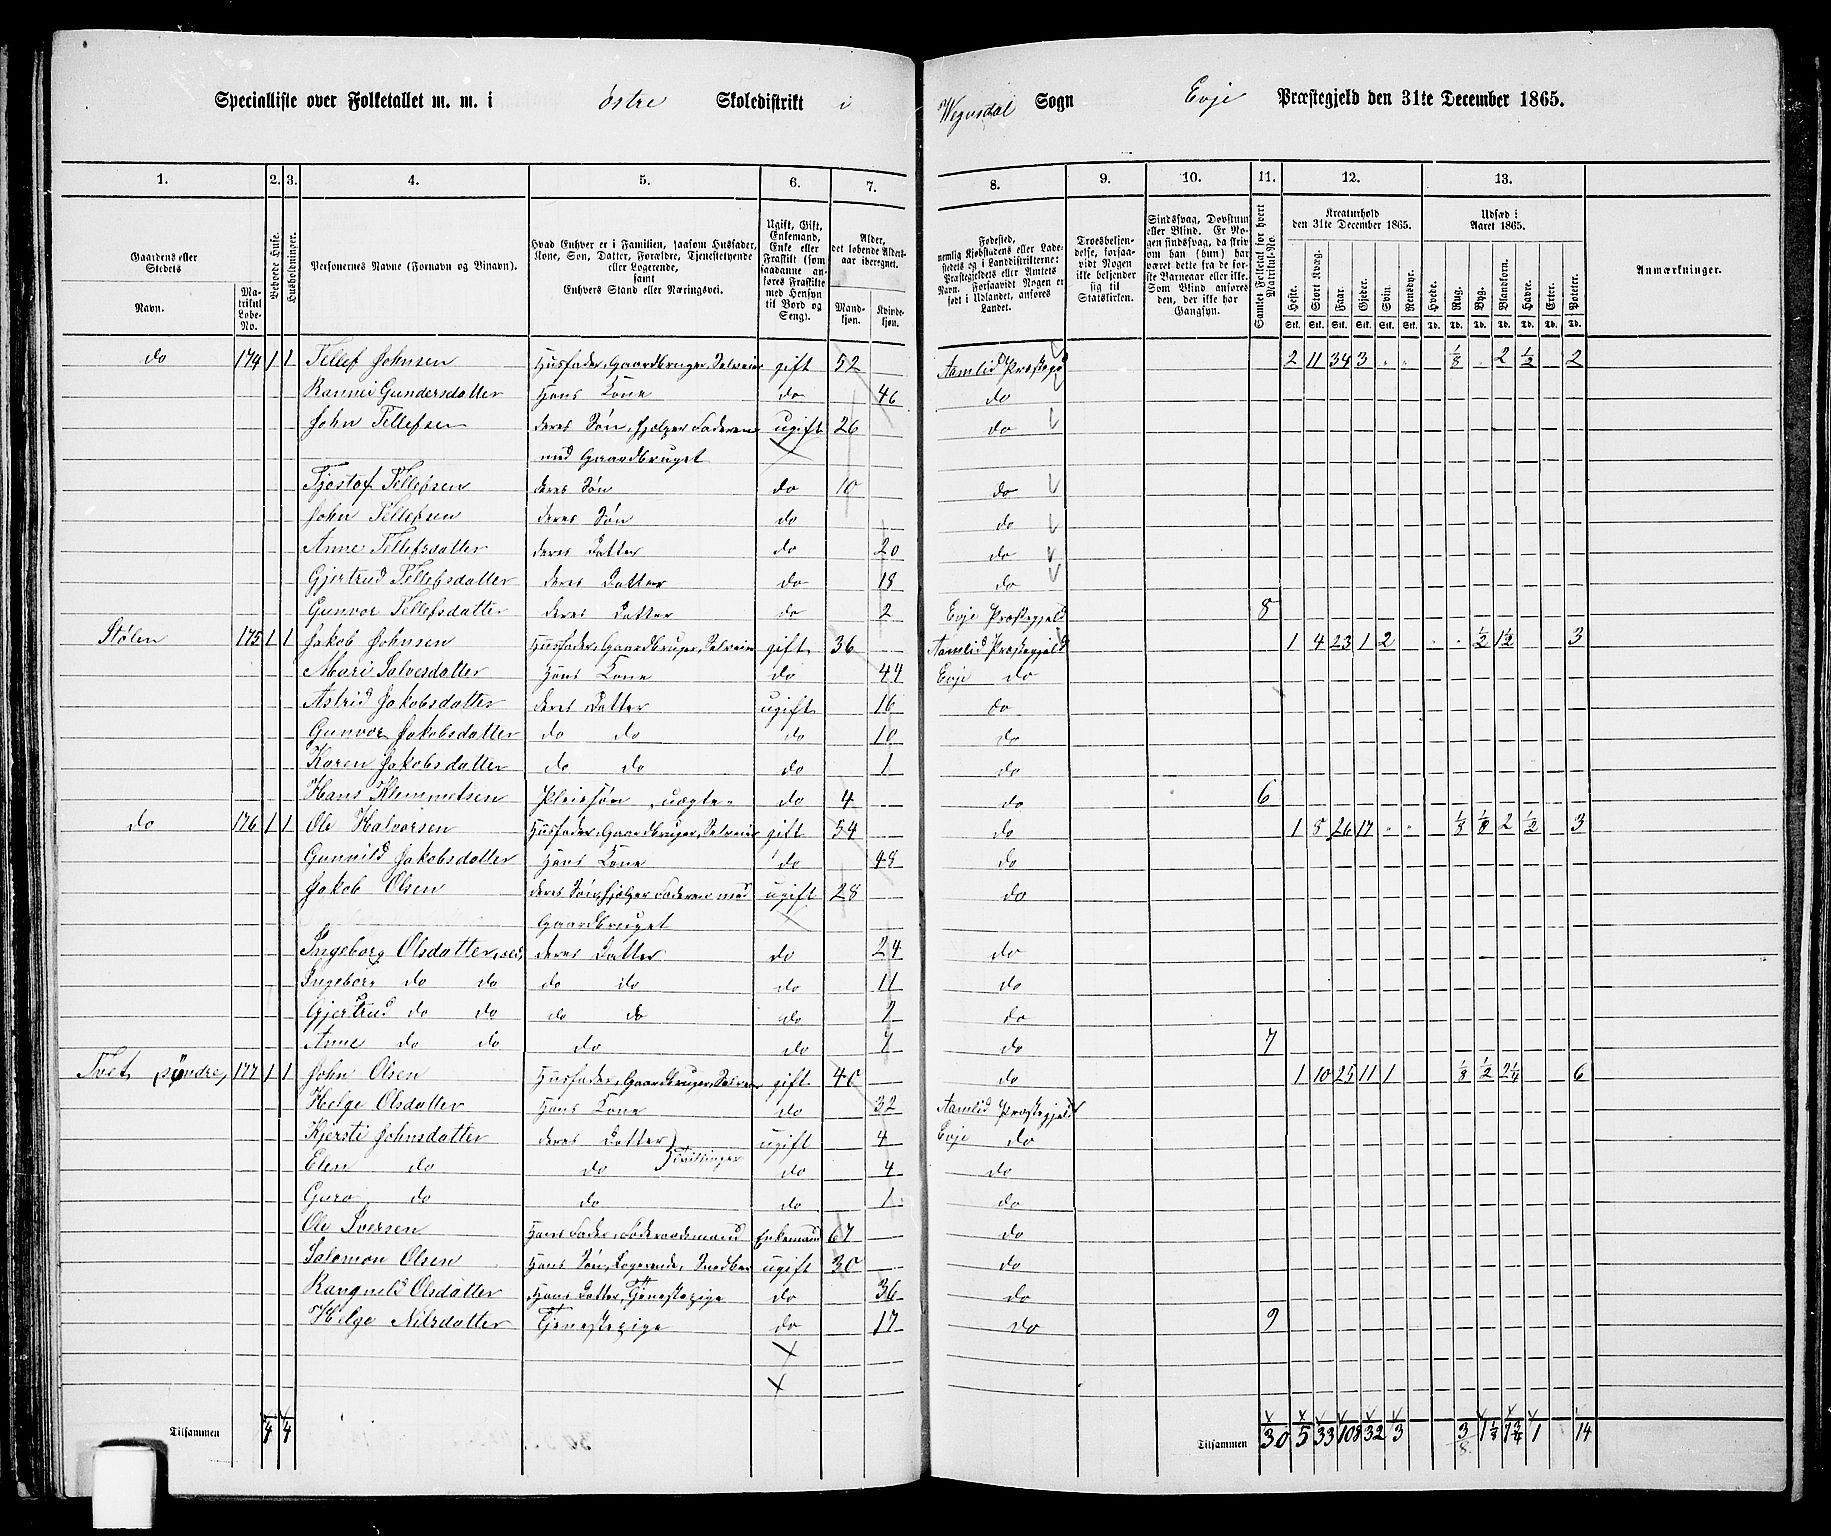 Specialliste over Folketallet m. m. i østre Skoledistrikt i Wegusdal Sogn Evje Præstegjeld den 31te December 1865.
1. 2. 3. 4. 5. 6. 7. 8. 9. 10. 11. 12. 13.
Gaardens eller Stedets
Navn.
Matrikul Løbe-No.
Beboede Huse.
Husholdninger.
Personernes Navne (Fornavn og Binavn).
Hvad Enhver er i Familien, saasom Husfader, Kone, Søn, Datter, Forældre, Tjenestetyende eller Logerende, samt Enhvers Stand eller Næringsvei.
Ugift, Gift, Enkemand, Enke eller Fraskilt (som saadanne anføres Fraskilte med Hensyn til Bord og Seng).
Alder, det løbende Aldersaar iberegnet.
Mandkjøn. Kvindekjøn.
Fødested, nemlig Kjøbstadens eller Ladestedets og i Landdistrikterne: Præstegjeldets eller Amtets Navn. Forsaavidt Nogen er født i Udlandet, anføres Landet.
Troesbekjendelse, forsaavidt Nogen ikke bekjender sig til Statskirken.
Sindssvag, Døvstum eller Blind. Er Nogen sindssvag, da skriv om han (hun) har været dette fra de første Barneaar eller ikke. Som Blind anføres den, der ikke har Gangsyn.
Samlet Folketal for hvert Matrikul-No.
Kreaturhold den 31te December 1865.
Heste. Stort Kvæg. Faar. Gjeder. Svin Rensdyr.
Udsæd i Aaret 1865.
Hvede. Rug. Byg. Blandkorn. Havre. Erter. Poteter.
Stk. Stk. Stk. Stk. Stk. Stk. Td. Td. Td. Td. Td. Td. Td.
Anmærkninger.
do 174 1 1 Tellef Johnsen Husfader, Gaardbruger, Selveier gift 52 Aamlid Præstegj 2 11 34 3 " " 1/8 " 2 1/2 2
Rannei Gundersdatter Hans Kone do 46 do
John Tellefsen deres Søn, hjelper Faderen ugift 26 do
med Gaardbruget
Tjøstof Tellefsen deres Søn do 10 do
John Tellefsen deres Søn do do
Anne Tellefsdatter deres Datter do 20 do
Gjertrud Tellefsdatter deres Datter do 18 do
Gunvor Tellefsdatter deres Datter do 2 Evje Præstegjeld 8
Stølen 175 1 1 Jakob Johnsen Husfader, Gaardbruger, Selveier gift 36 Aamlid Præstegjeld 1 4 23 1 2 " " 1/2 1 1/2 3
Mari Salvesdatter Hans Kone do 44 Evje do
Astrid Jakobsdatter deres Datter ugift 16 do
Gunvor Jakobsdatter do do do 10 do
Karen Jakobsdatter do do do 1 do
Hans Klemmetsen Pleiesøn, uægte do 4 do 6
do 176 1 1 Ole Halvorsen Husfader, Gaardbruger, Selveier gift 54 do 1 8 26 17 " " 1/8 1/8 2 1/2 3
Gunvild Jakobsdatter Hans Kone do 48 do
Jakob Olsen deres Søn, hjelper Faderen med ugift 28 do
Gaardbruget
Ingeborg Olsdatter, æld, deres Datter do 24 do
Ingeborg do do do do do 11 do
Gjertrud do do do do do 9 do
Anne do do do do 7 do 7
Tvet, søndre, 177 1 1 John Olsen Husfader, Gaardbruger, Selveier gift 40 do 1 10 25 11 1 1/8 1/2 2 1/4 6
Helge Olsdatter Hans Kone do 32 Aamlid Præstegjeld
Kjersti Johnsdatter deres Datter ugift 4 Evje do
Tvillinger
Elen do do do 4 do
Guro do do do 1 do
Ole Iversen Hans Fader, Føderaadsmand Enkemand 67 do
Salomon Olsen Hans Søn, Logerende, Snedker ugift 30 do
Rangnild Olsdatter Hans Datter, Tjenestepige do 36 do
Helge Nilsdatter Tjenestepige do 17 do 9
Tilsammen 4 4 Tilsammen 30 5 33 108 32 3 3/8 1 1/8 7 3/4 1 14